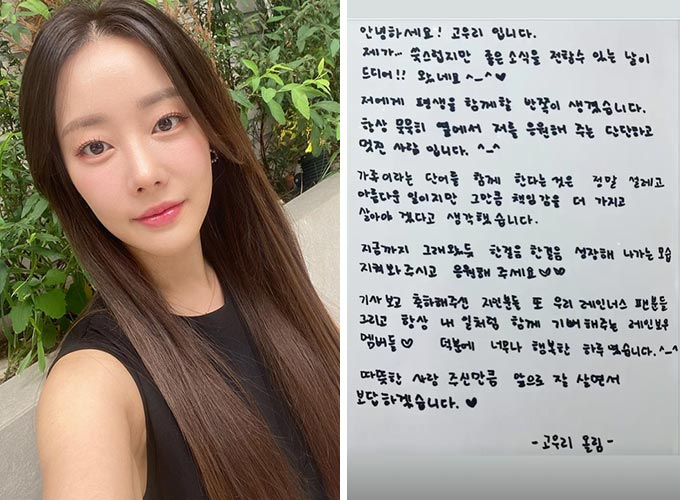 안녕하세요! 고우리 입니다.
제가... 쑥스럽지만 좋은 소식을 전할수 있는 날이
드디어!! 왔네요 ^_^ ♥
저에게 평생을 함께할 반쪽이 생겼습니다.
항상 묵묵히 옆에서 저를 응원해 주는 단단하고
멋진 사람 입니다. ^_^
가족이라는 단어를 함께 한다는것은 정말 설레고
아름다운 일이지만 그만큼 책임감을 더 가지고
살아야 겠다고 생각했습니다.
지금까지 그래왔듯 한걸음 한걸음 성장해 나가는 모습
지켜봐 주시고 응원해 주세요♡♡
기사 보고 축하해주신 지인분들 또 우리 레인너스 팬분들
그리고 항상 내 일처럼 함께 기뻐해주는 레인보우
멤버들♡ 덕분에 너무나 행복한 하루 였습니다.^_^
따뜻한 사랑 주신만큼 앞으로 잘 살면서
보답하겠습니다.♥
-고우리 올림-